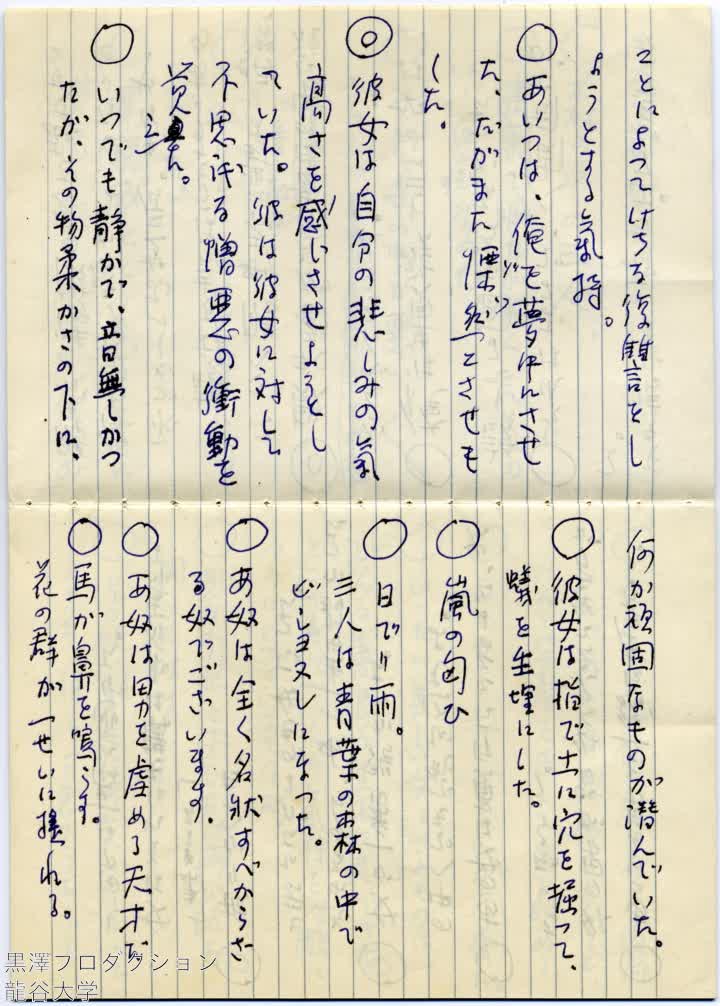 ことによつてけちな復讐をし
ようとする氣持。
○あいつは、俺を夢中にさせ
た、だがまた慄然とさせも
した。
◎彼女は自分の悲しみの氣
高さを感じさせようとし
ていた。彼は彼女に対して
不思議な憎悪の衝動を
覚えた。
○いつでも静かで、音無しかつ
たが、その物柔かさの下に、
何か頑固なものが潜んでいた。
○彼女は指で土に穴を掘って、
蟻を生埋にした。
○嵐の匂ひ
○日でり雨。
三人は青葉の森の中で
ビショヌレになつた。
○あ奴は全く名状すべからざ
る奴でございます。
○あ奴は男を虐める天才だ
○馬が鼻を鳴らす。
花の群が一せいに揺れる。
黒澤プロダクション
龍谷大学